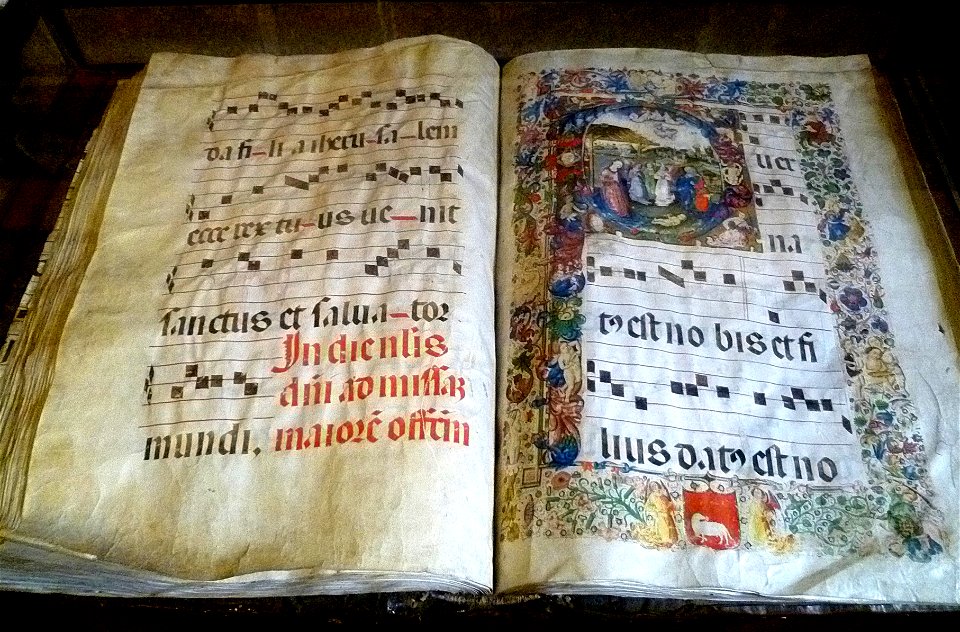 da fi-li a iheru-sa-lem
ecce rex tu-us ue-nit
sanctus et salua-tor
In die nlis
dn̄i ad missaꝫ
mundi. maiorē offm̄
P uer
na
tꝰ est no bis et fi
lius datꝰ est no